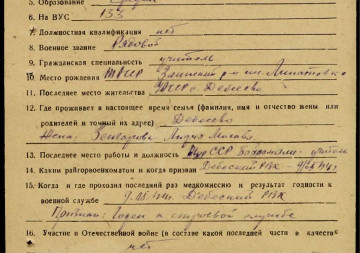 5. Образование Средн
6. На ВУС 133
7. Должностная квалификация нет
8. Военное звание Рядовой
9. Гражданская специальность учитель
10. Место рождения ТАССР Заинский р-н
11. Последнее место жительства с Дебессы
12. Где проживает в настоящее время семья (фамилия, имя и отчество жены или
родителей и точный их адрес) Дебессы
Жена:
13. Последнее место работы и должность учитель
14. Каким райгорвоенкоматом и когда призван Дебесский РВК
15. Когда и где проходил последний раз медкомиссию и результат годности к
военной службе Дебесский РВК
Признан: Годен к строевой службе
16. Участие в Отечественной войне (в составе какой последней части в качестве
нет